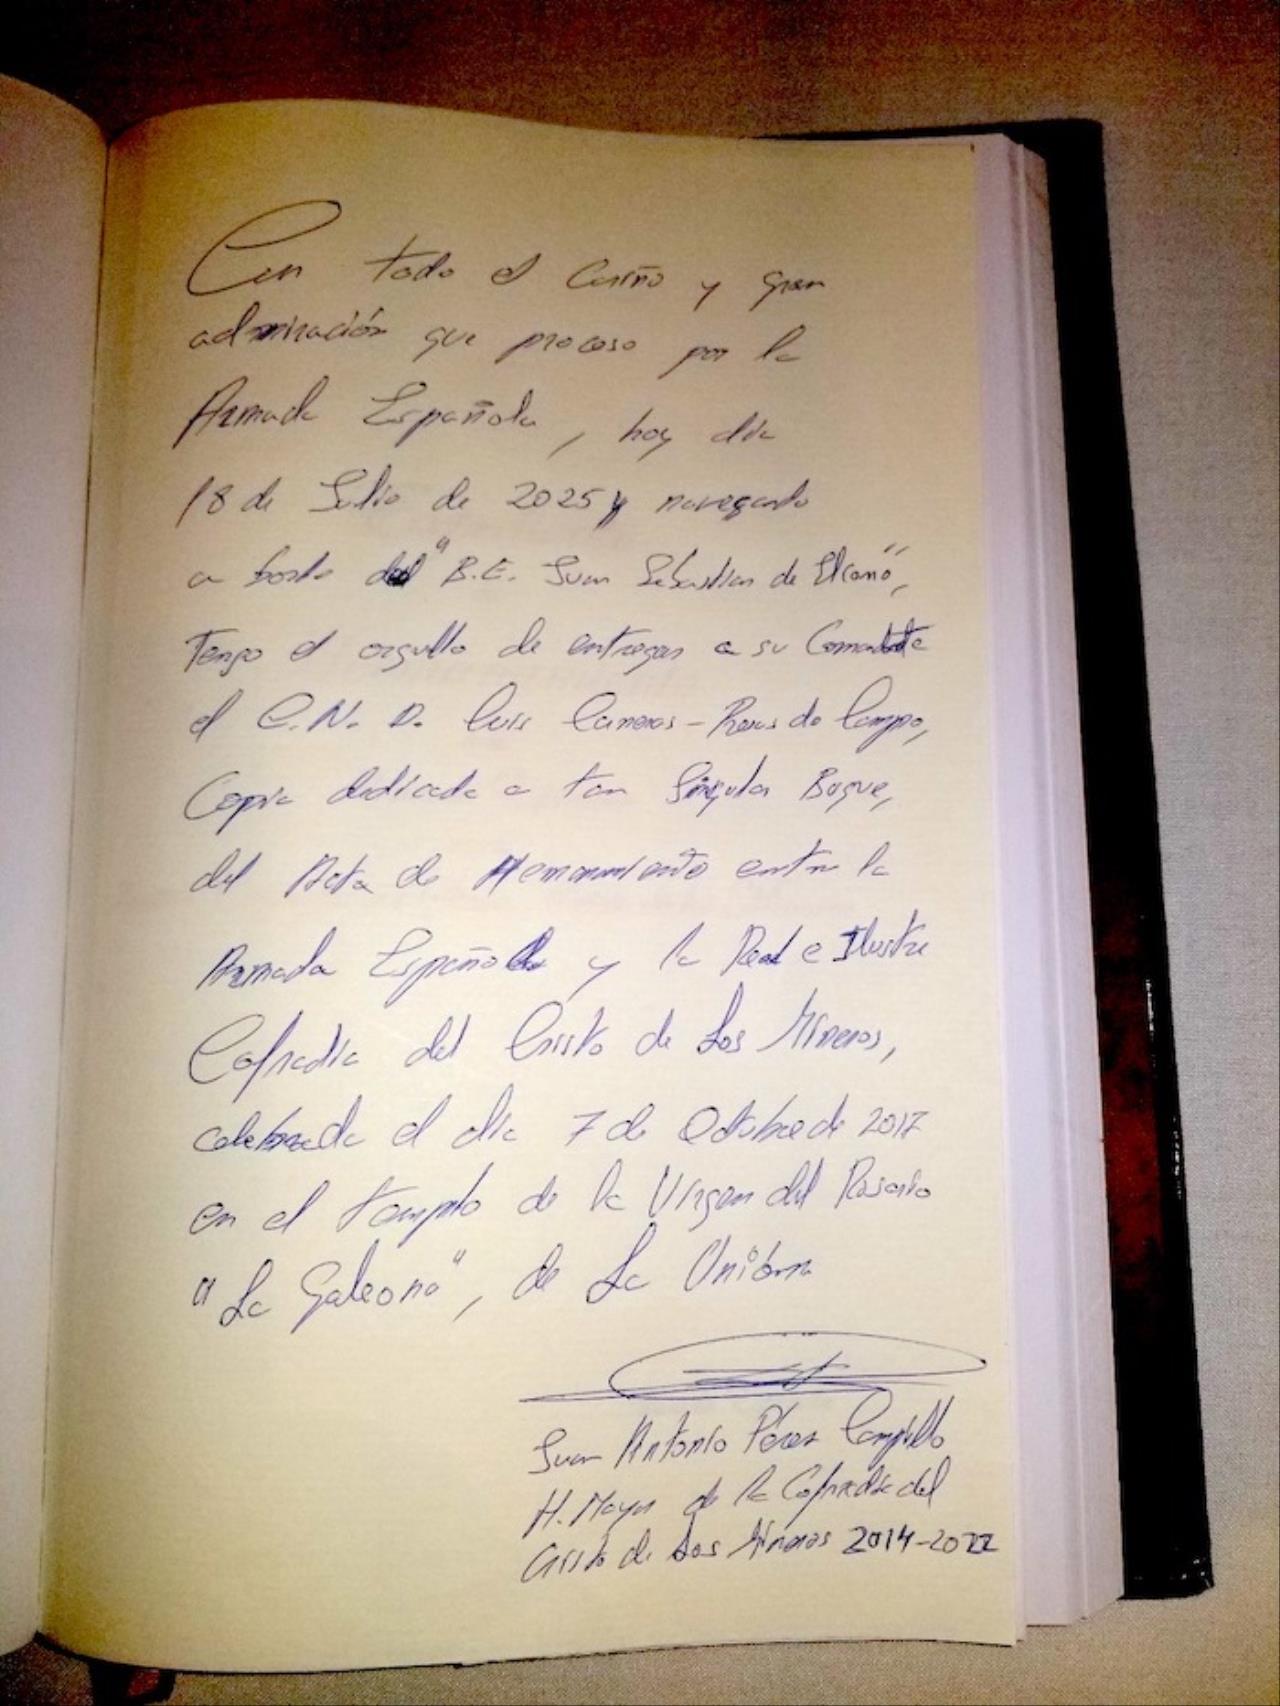 Con todo el Cariño y gran
admiración que proceso por la
Armada Española, hoy día
18 de Julio de 2025 y navegando
a bordo del "B.E. Juan Sebastian de Elcano",
Tengo el orgullo de entregar a su Comandante
el C.N. D. Luis Carreras-Presas do Campo,
Copia dedicada a tan Singular Buque,
del Acta de Hermanamiento entre la
Armada Española y la Real e Ilustre
Cofradía del Cristo de Los Mineros,
celebrada el día 7 de Octubre de 2017
en el templo de la Virgen del Rosario
"La Galeona", de La Unión
Juan Antonio Pérez Campillo
H. Mayor de la Cofradía del
Cristo de Los Mineros 2014-2022